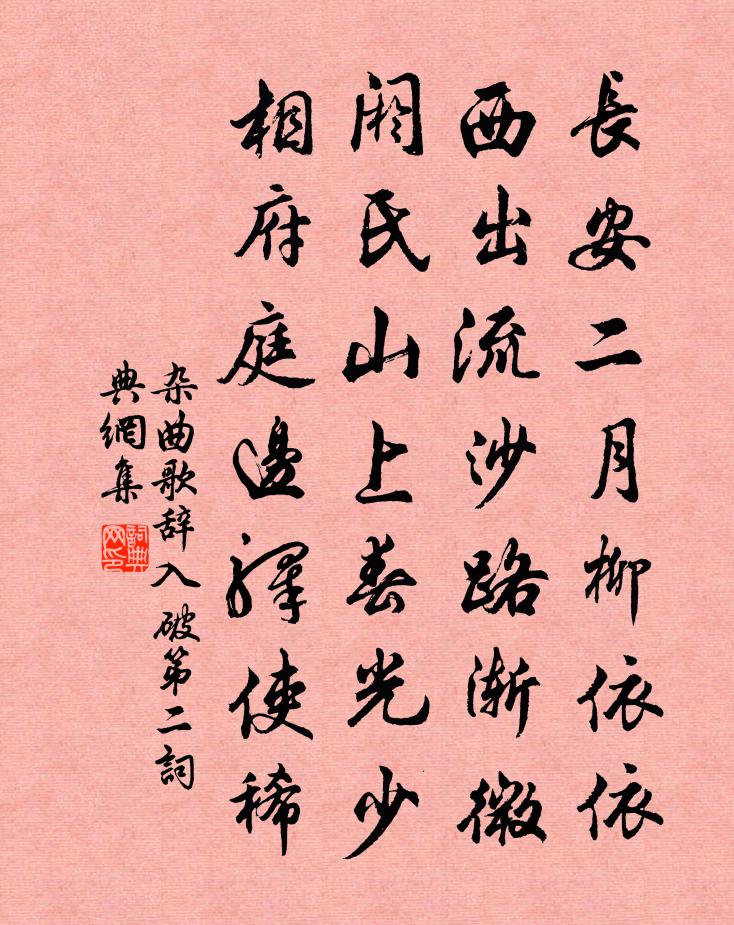 長安二月柳依依
西出流沙路漸微
閼氏山上春光少
相府庭邊驛使稀
杂曲歌辞入破第二詞
典網集
詞典网印